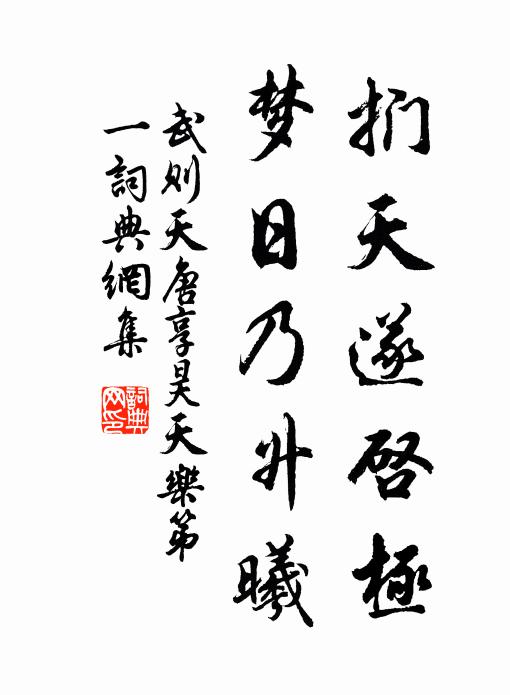 捫天遂啓極
梦日乃升曦
武则天唐享昊天樂第
一詞典網集
詞典
网印